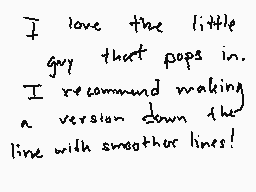 I love the little
guy that pops in.
I recommend making
a version down the
line with smoother lines!